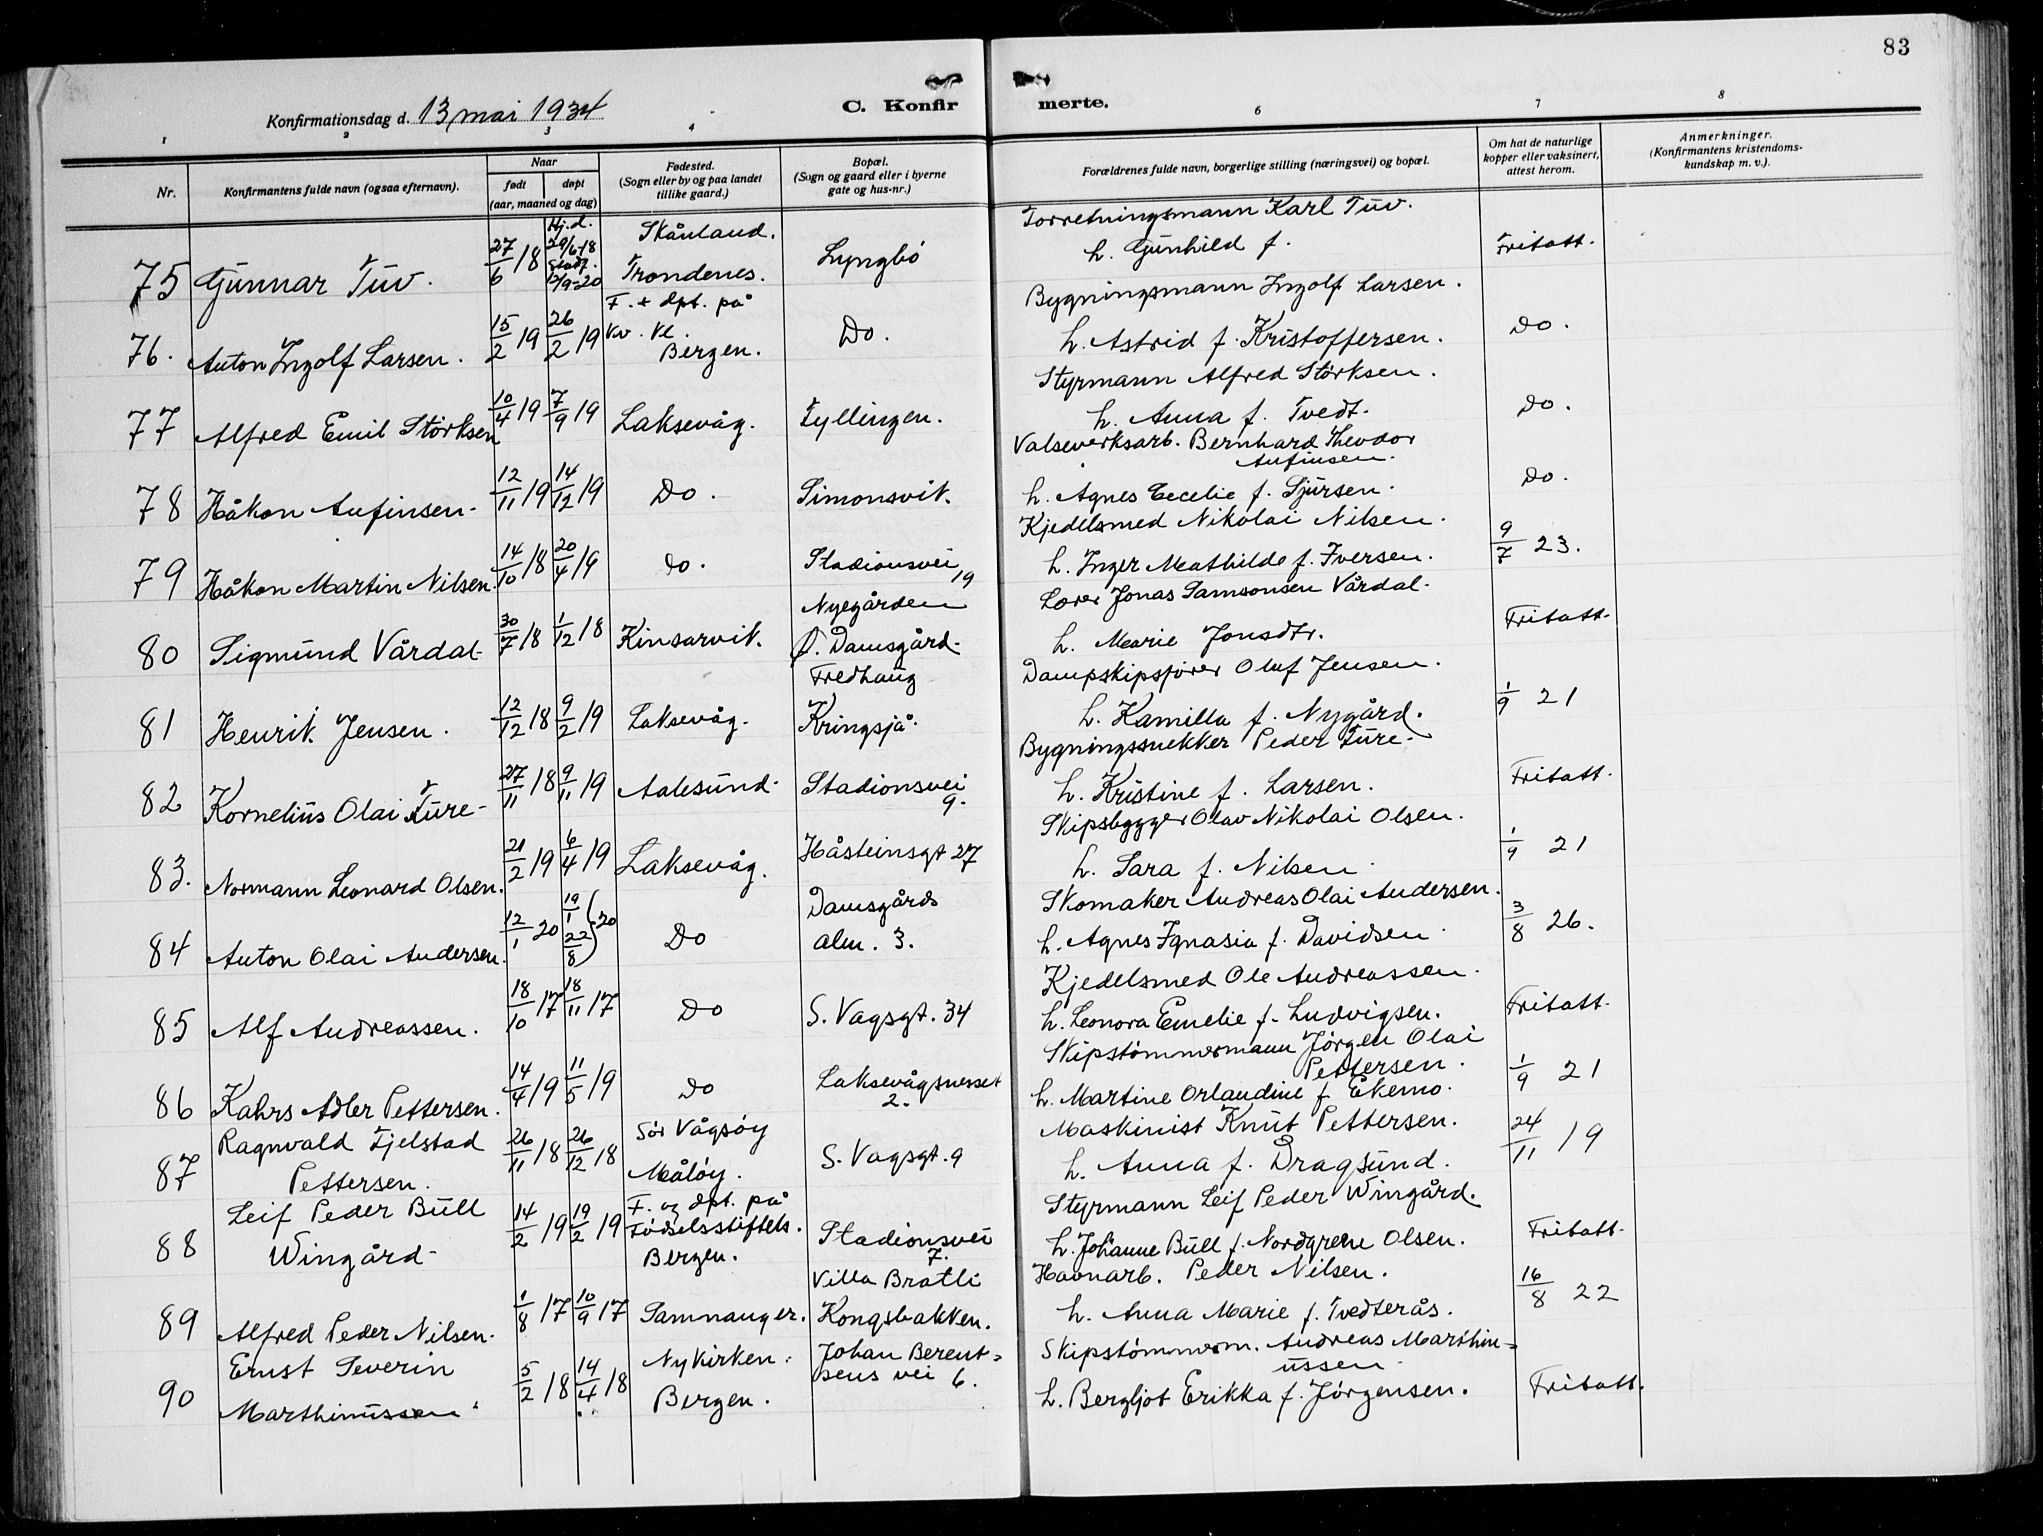 83
Konfirmationsdag d. 13 mai 1934
C. Konfirmerte.
1 2 3 4 6 7 8
Nr.
Konfirmantens fulde navn (ogsaa efternavn).
Naar
født døpt
(aar, maaned og dag)
Fødested.
(Sogn eller by og paa landet
tillike gaard.)
Bopæl.
(Sogn og gaard eller i byerne
gate og hus-nr.)
Forældrenes fulde navn, borgerlige stilling (næringsvei) og bopæl.
Om hat de naturlige
kopper eller vaksinert,
attest herom.
Anmerkninger.
(Konfirmantens kristendoms-
kundskap m. v.).
75 Gunnar Tuv. 27/6 18 Hj.d. 29/6-18 stadf. 12/9-20 Skånland. Trondenes. Lyngbö
Forretningsmann Karl Tuv.
h. Gunhild f. Fritatt.
76. Anton Ingolf Larsen. 15/2 19 26/2 19 F. + dpt. på Kv. Kl. Bergen. Do.
Bygningsmann Ingolf Larsen.
h. Astrid f. Kristoffersen. Do.
77 Alfred Emil Störksen 10/4 19 7/9 19 Laksevåg. Fyllingen.
Styrmann Alfred Störksen.
h. Anna f. Tvedt. Do.
78 Håkon Anfinsen. 12/11 19 14/12 19 Do. Simonsvik.
Valseverksarb. Bernhard Theodor
Anfinsen.
h. Agnes Cecelie f. Sjursen. Do.
79 Håkon Martin Nilsen. 14/10 18 20/4 19 Do. Stadionsvei 19
Kjedelsmed Nikolai Nilsen.
h. Inger Mathilde f. Iversen. 9/7 23.
80 Sigmund Vårdal 30/7 18 1/12 18 Kinsarvik. Nyegården Ø. Damsgård.
Lærer Jonas Samsonsen Vårdal.
h. Marie Jonsdtr. Fritatt.
81 Henrik Jensen. 12/12 18 9/2 19 Laksevåg. Fredhaug Kringsjå.
Dampskipsförer Oluf Jensen.
h. Kamilla f. Nygård. 1/9 21
82 Kornelius Olai Fure 27/11 18 9/11 19 Aalesund. Stadionsvei 9.
Bygningssnekker Peder Fure.
h. Kristine f. Larsen. Fritatt.
83. Normann Leonard Olsen. 21/2 19 6/4 19 Laksevåg. Håsteinsgt 27
Skipsbygger Olav Nikolai Olsen.
h. Sara f. Nilsen. 1/9 21
84 Anton Olai Andersen. 12/1 20 19/1 22/8 20 Do Damsgårds alm. 3.
Skomaker Andreas Olai Andersen.
h. Agnes Ignasia f. Davidsen. 3/8 26.
85 Alf Andreassen. 18/10 17 18/11 17 Do S. Vagsgt. 34
Kjedelsmed Ole Andreassen.
h. Leonora Emelie f. Ludvigsen. Fritatt.
86 Kahrs Adler Pettersen. 14/4 19 11/5 19 Do Laksevågsnesset 2.
Skipstömmermann Jörgen Olai
Pettersen.
h. Martine Orlaudine f. Ekemo. 1/9 21
87 Ragnvald Fjelstad Pettersen. 26/11 18 26/12 18 Sör Vågsöy Målöy. S. Vagsgt. 9
Maskinist Knut Pettersen.
h. Anna f. Dragsund. 24/11 19
88 Leif Peder Bull Wingård 14/2 19 19/2 19 F. og dpt. på Födselsstiftels. Bergen. Stadionsvei 7.
Styrmann Leif Peder Wingård.
h. Johanne Bull f. Nordgrene Olsen. Fritatt.
89 Alfred Peder Nilsen. 1/8 17 10/9 17 Samnanger. Villa Bratli Kongsbakken.
Havnarb. Peder Nilsen.
h. Anna Marie f. Tvedterås. 16/8 22
90 Ernst Severin Marthinussen. 5/2 18 14/4 18 Nykirken. Bergen. Johan Berent= sens vei 6.
Skipstömmerm. Andreas Marthin=
ussen.
h. Bergljot Erikka f. Jörgensen. Fritatt.